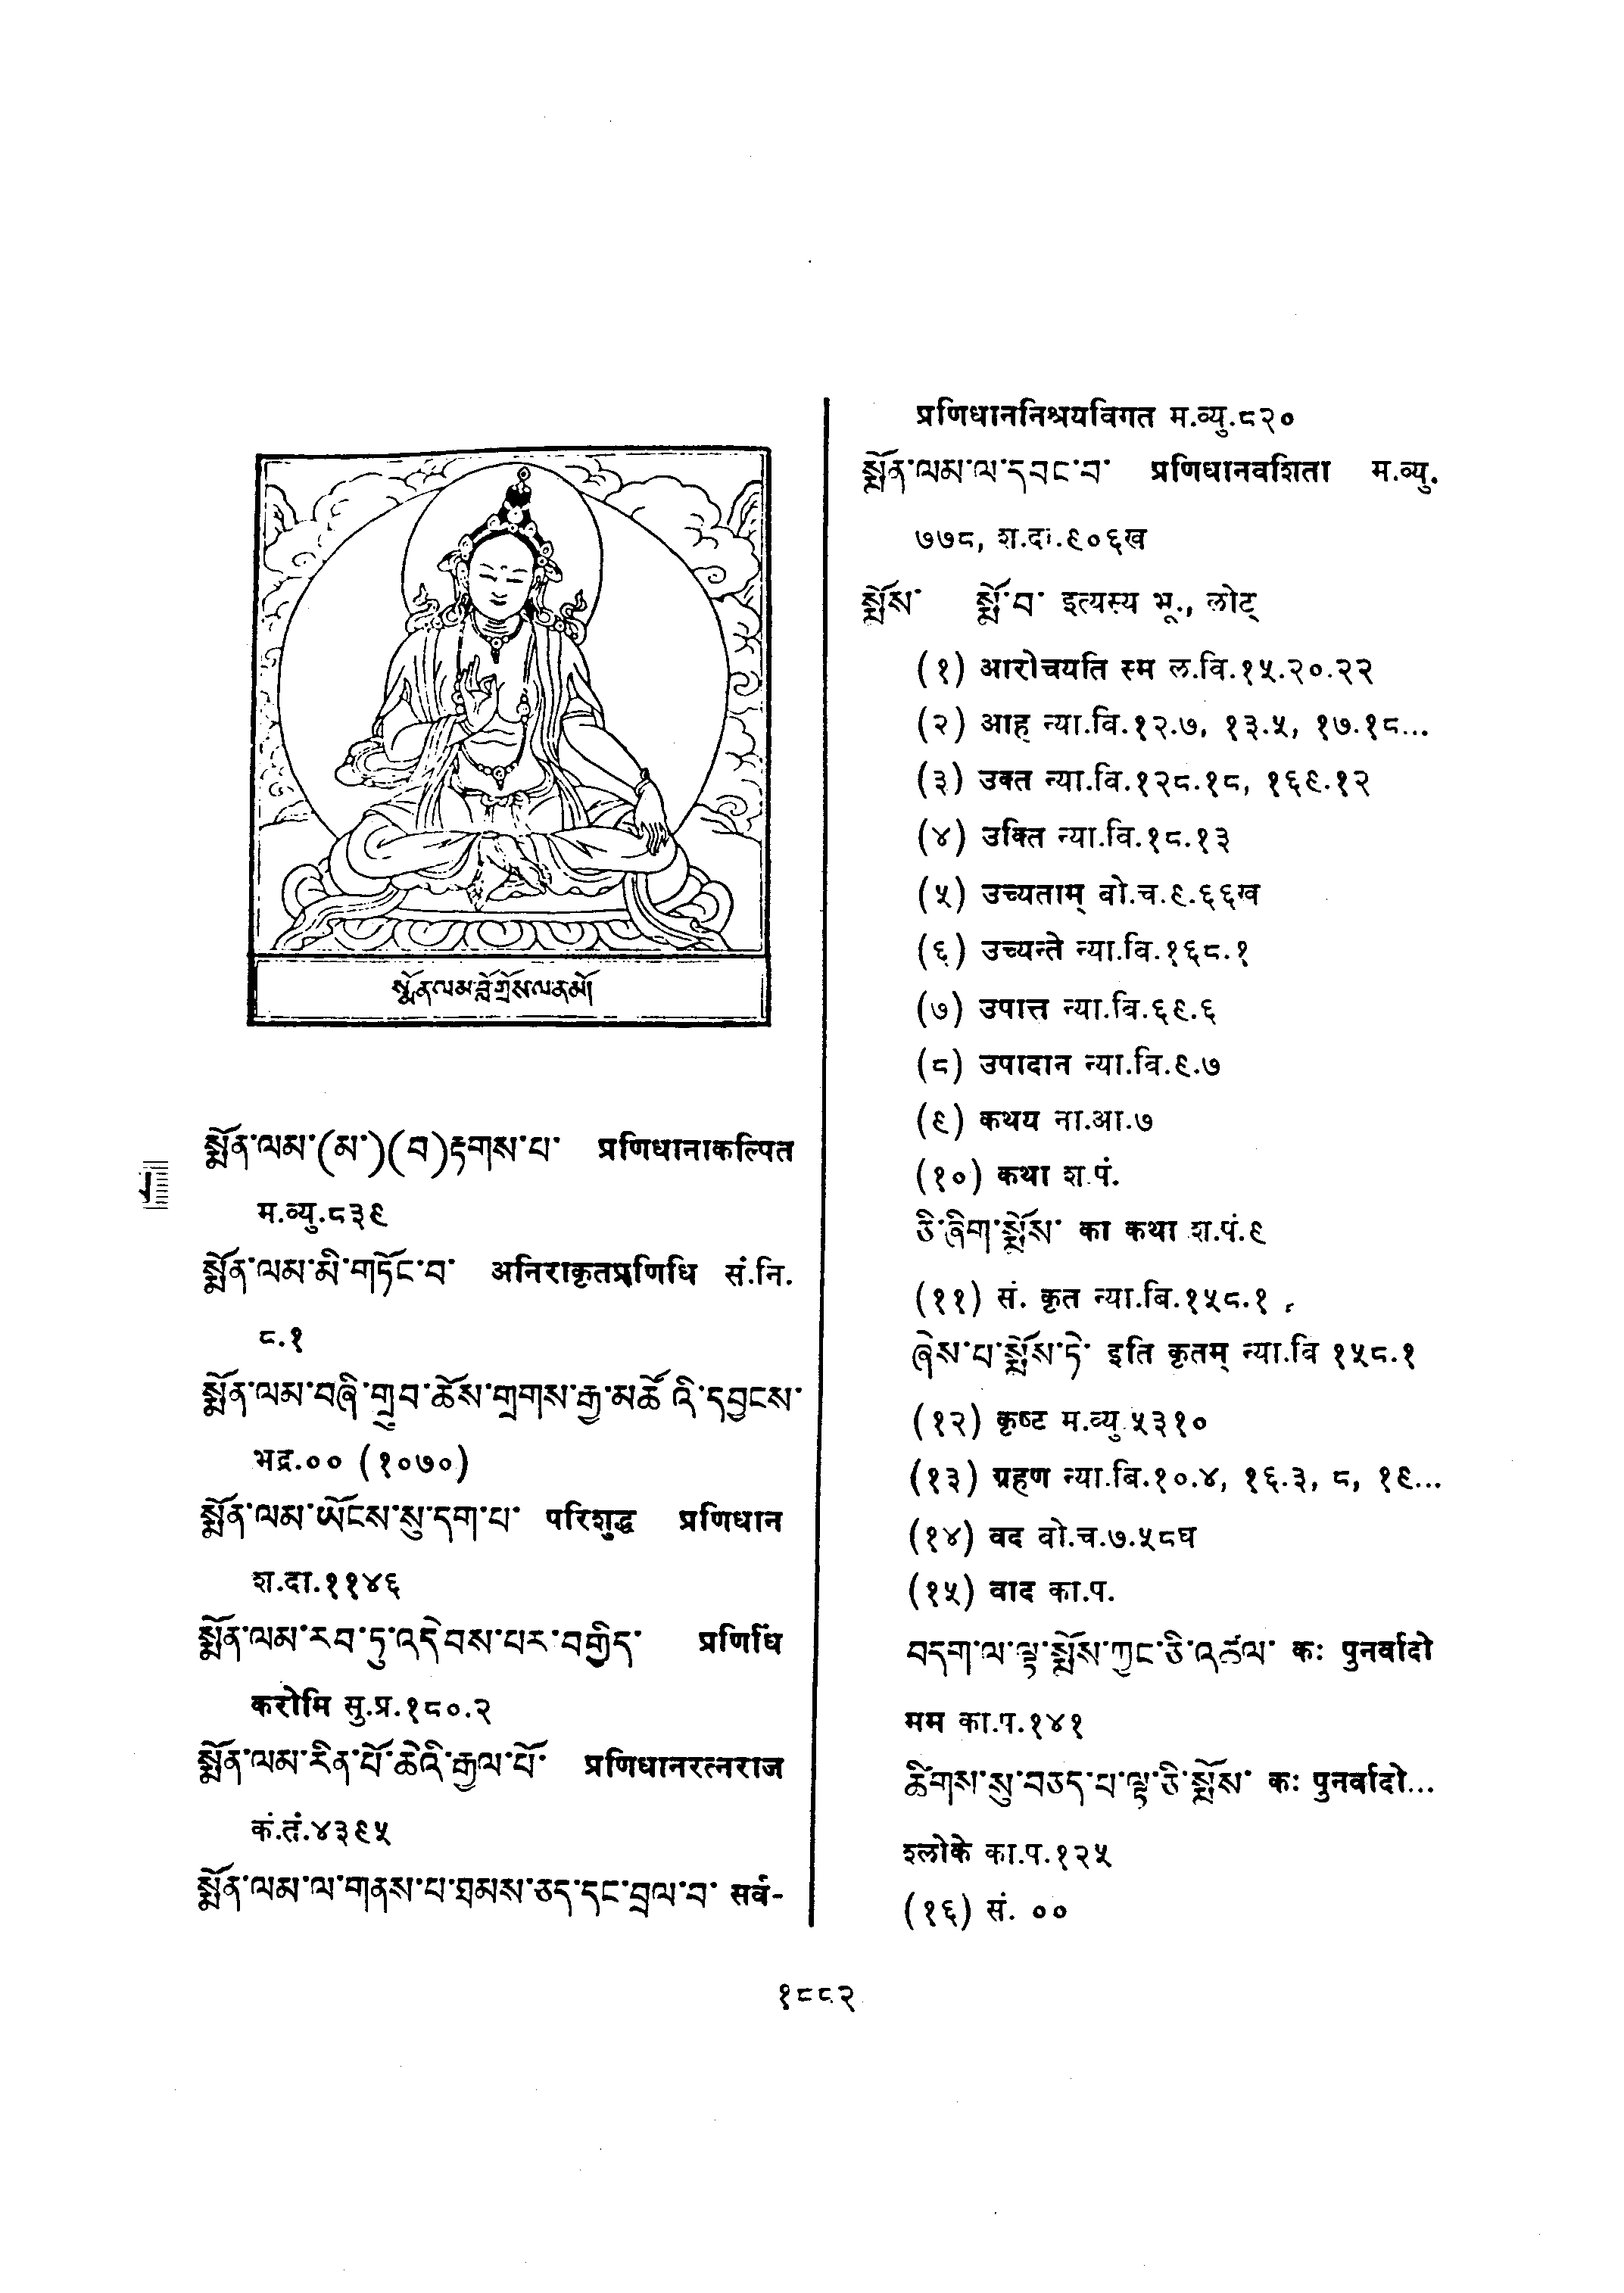 སྨོན་ལམ་བློ་གྲོས་ལ་ན་མོ།
སྨོན་ལམ་(མ་)(བ)རྟགས་པ་ प्रणिधानाकल्पित
म.व्यु.८३९
སྨོན་ལམ་མི་གཏོང་བ་ अनिराकृतप्रणिधि सं.नि.
८.१
སྨོན་ལམ་བཞི་གྲུབ་ཆོས་གྲགས་རྒྱ་མཚོ འི་དབྱངས་
भद्र.०० (१०७०)
སྨོན་ལམ་ཡོངས་སུ་དག་པ་ परिशुद्ध प्रणिधान
श.दा.११४६
སྨོན་ལམ་རབ་ཏུ་འདེབས་པར་བགྱིད་ प्रणिधिं
करोमि सु.प्र.१८०.२
སྨོན་ལམ་རིན་པོ་ཆེའི་རྒྱལ་པོ་ प्रणिधानरत्नराज
कं.तं.४३९५
སྨོན་ལམ་ལ་གནས་པ་ཐམས་ཅད་དང་བྲལ་བ་ सर्व-
प्रणिधाननिश्रयविगत म.व्यु.८२०
སྨོན་ལམ་ལ་དབང་བ་ प्रणिधानवशिता म.व्यु.
७७८, श.दा.९०६ख
སྨོས་ སྨོ་བ་ इत्यस्य भू., लोट्
(१) आरोचयति स्म ल.वि.१५.२०.२२
(२) आह न्या.वि.१२.७, १३.५, १७.१८...
(३) उक्त न्या.वि.१२८.१८, १६९.१२
(४) उक्ति न्या.वि.१८.१३
(५) उच्यताम् बो.च.९.६६ख
(६) उच्यन्ते न्या.वि.१६८.१
(७) उपात्त न्या.वि.६९.६
(८) उपादान न्या.वि.९.७
(९) कथय ना.आ.७
(१०) कथा श.पं.
ཅི་ཞིག་སྨོས་ का कथा श.पं.९
(११) सं. कृत न्या.बि.१५८.१
ཞེས་པ་སྨོས་ཏེ་ इति कृतम् न्या.वि १५८.१
(१२) कृष्ट म.व्यु.५३१०
(१३) ग्रहण न्या.बि.१०.४, १६.३, ८, १९...
(१४) वद बो.च.७.५८घ
(१५) वाद का.प.
བདག་ལ་ལྟ་སྨོས་ཀྱང་ཅི་འཚལ་ कः पुनर्वादो
मम का.प.१४१
ཚིགས་སུ་བཅད་པ་ལྟ་ཅི་སྨོས་ कः पुनर्वादो...
श्लोके का.प.१२५
(१६) सं. ००
१८८२